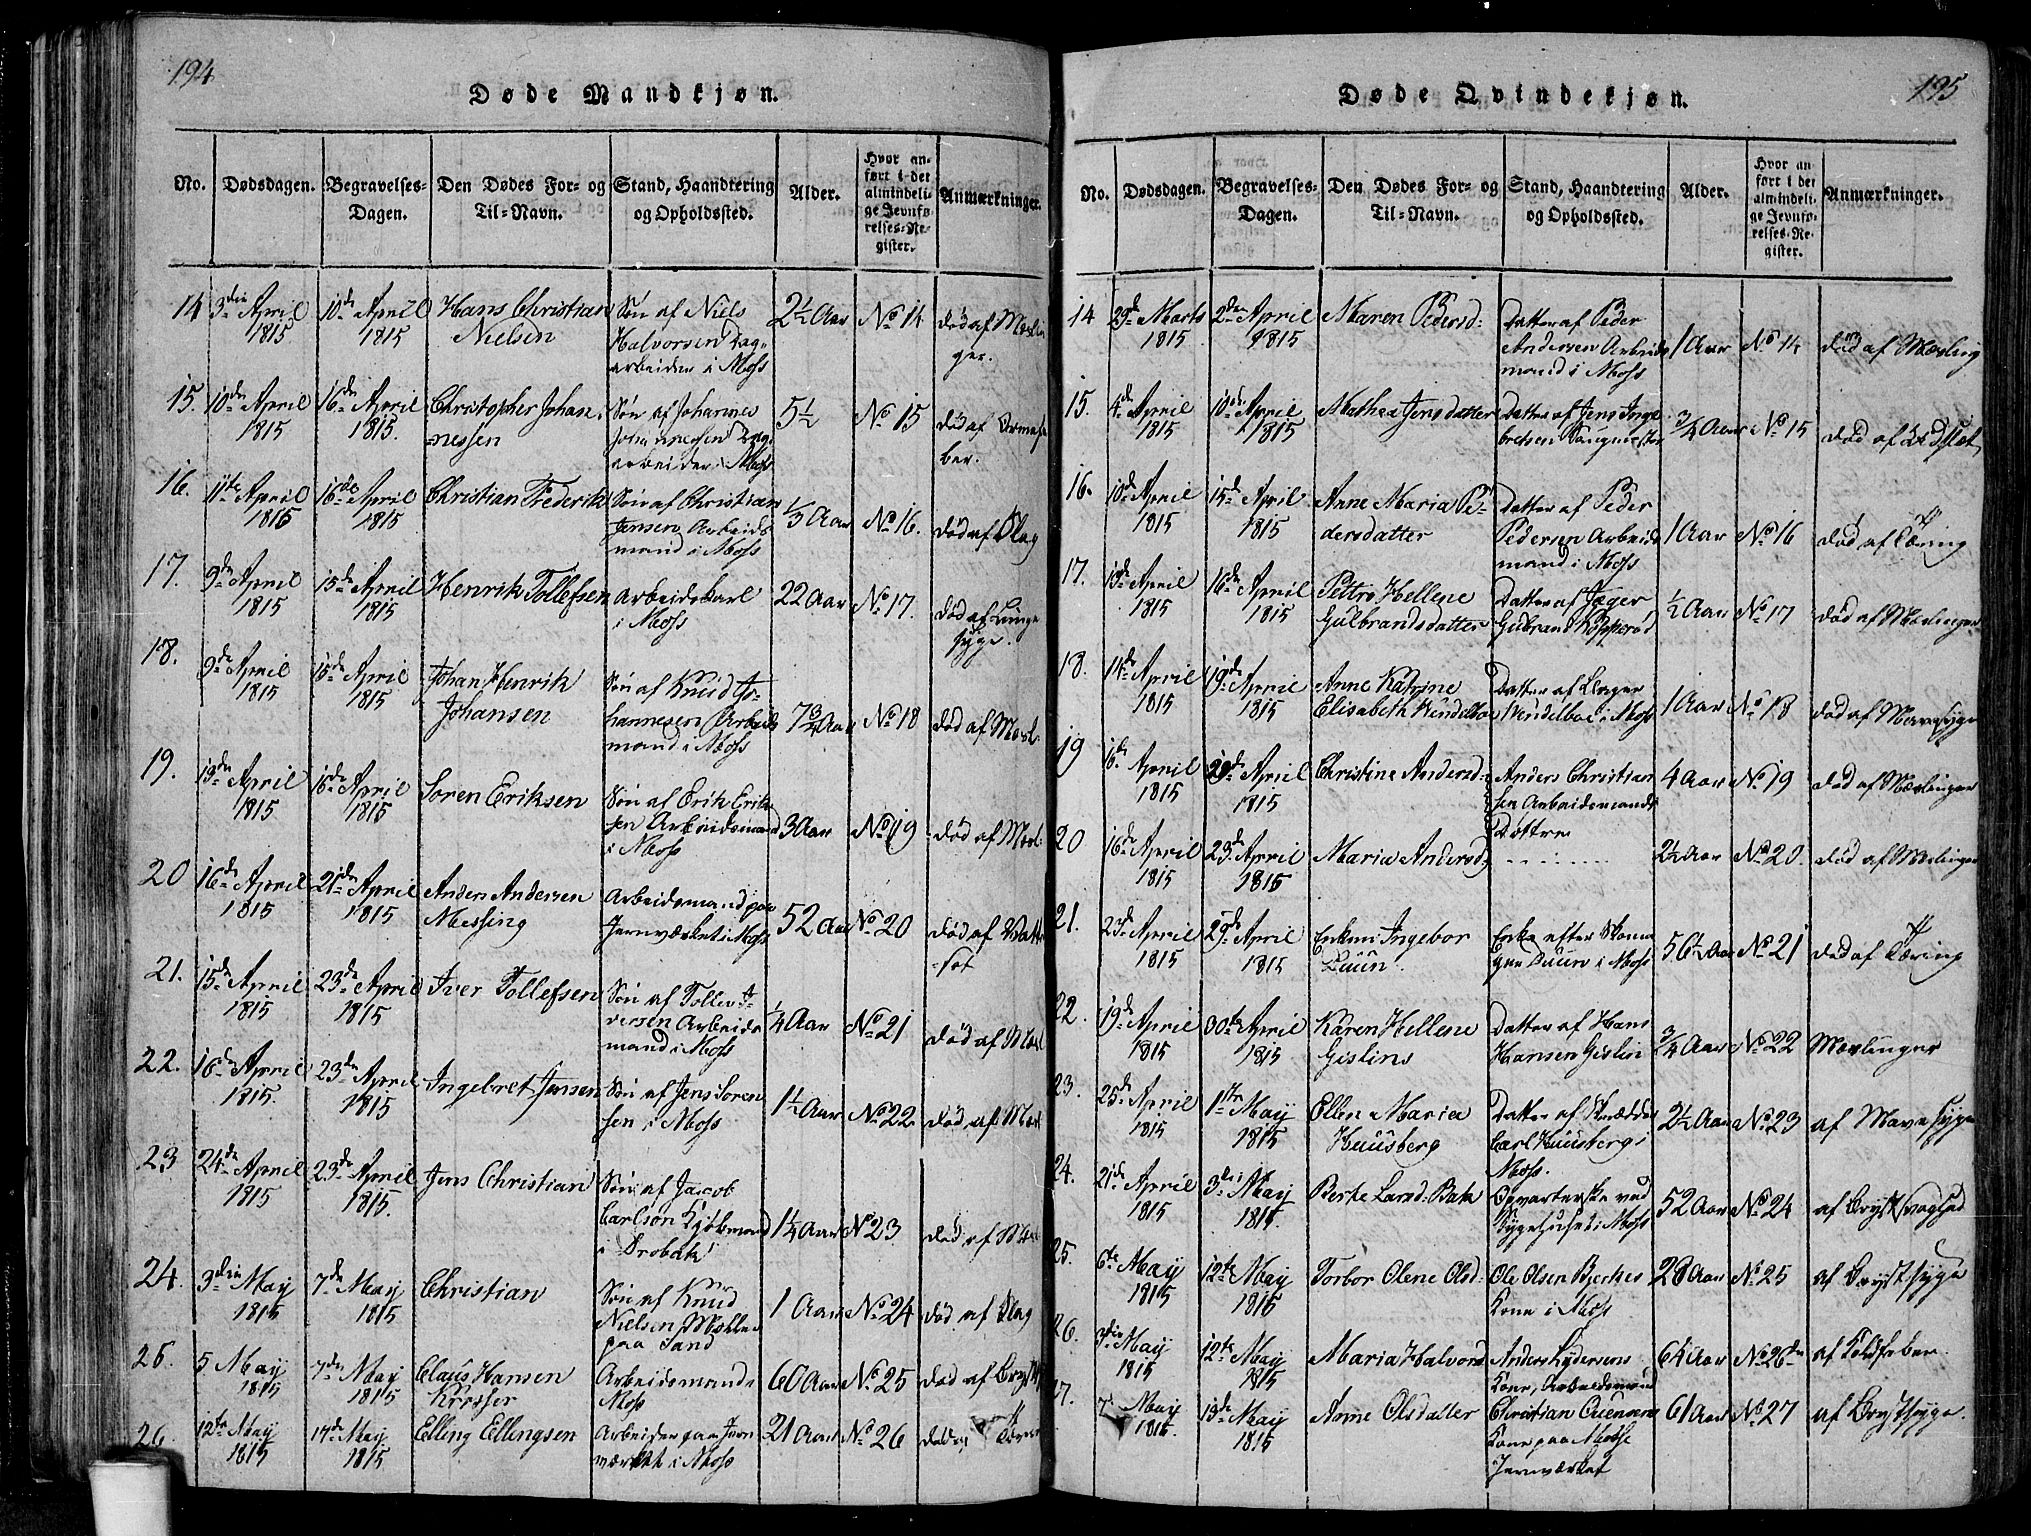 194
Døde Mandkjøn.
No. Dødsdagen. Begravelses-Dagen. Den Dødes For- og Til-Navn. Stand, Haandtering og Opholdssted. Alder. Hvor anført i det almindelige Jevnførelses-Register. Anmærkninger.
14 3die April 1815 10de April 1815 Hans Christian Nielsen Søn af Niels Halvorsen Dagarbeider i Moss 2½ Aar No 14 død af
15. 10de April 1815 16de April 1815. Christopher Johannessen Søn af Johannes Johannessen Dagarbeider i Moss 5½ No 15 død af
16. 11te April 1815 16de April 1815 Christian Frederik Søn af Christian Jensen Arbeidsmand i Moss ⅓ Aar No 16. død af Slag
17. 9de April 1815 15de April 1815 Henrik Tollefsen Arbeidskarl i Moss 22 Aar No 17. død af Lunge syge.
18. 9de April 1815 15de April 1815 Johan Henrik Johansen Søn af Knud Johannesen Arbeidsmand i Moss 7¾ Aar No 18 død af Mesl.
19. 13de April 1815 16de April 1815 Soren Eriksen Søn af Erik Eriksen Arbeidsmand i Moss 3 Aar No 19 død af Mesl.
20 16de April 1815 21de April 1815 Anders Andersen Messing Arbeidsmand paa Jernværket i Moss 52 Aar No 20 død af
21. 15de April 1815 23de April 1815 Iver Tollefsen Søn af Tollev Iversen Arbeidsmand i Moss ¼ Aar No 21 død af Mesl
22. 16de April 1815. 23de April 1815 Ingebret Jensen Søn af Jens Sorensen i Moss 1½ Aar No 22 død af Mesl
23 24de April 1815 23de April 1815. Jens Christian Søn af Jacob Carlson Kjøbmand i Drobak 1¼ Aar No 23 død af
24. 3die May 1815 7de May 1815 Christian Søn af Knud Nielsen paa Sand 1 Aar No 24 død af Slag
25. 5 May 1815 7de May 1815 Claus Hansen Arbeidsmand Moss 60 Aar No 25 død af
26. 12te May 1815 17de May 1815 Elling Ellingsen Arbeider paa Jernværket i Moss 21 Aar No 26 død
195
Døde Qvindekjøn.
No. Dødsdagen. Begravelses-Dagen. Den Dødes For- og Til-Navn. Stand, Haandtering og Opholdssted. Alder. Hvor anført i det almindelige Jevnførelses-Register. Anmærkninger.
14 29de Marts 1815 2den April 1815 Maren Pedersd Datter af Peder Andersen Arbeidsmand i Moss 1 Aar No 14 død af Mesling
15. 4de April 1815 10de April 1815 Mathea Jensdatter Datter af Jens Ingebretsen ¾ Aar No 15 død af
16. 10de April 1815 15de April 1815 Anne Maria Pedersdatter Datter af Peder Pedersen Arbeidsmand i Moss 1 Aar No 16 død af Tæring
17. 13de April 1815 16de April 1815 Pettro Hellene Gulbrandsdatter Datter af Jæger Gulbrand ½ Aar No 17 død af Meslinger
18. 14de April 1815 19de April 1815 Anne Katrine Elisabeth Vendelboe Datter af Vendelboe i Moss 1 Aar No 18 død af Mavesyge
19 16de April 1815 20de April 1815 Christine Andersd: Anders Christiansen Arbeidsmands Døttre 4 Aar No 19 død af Meslinger
20 16de April 1815 23de April 1815 Maria Andersd: 2½ Aar No 20. død af Meslinger
21. 23de April 1815 29de April 1815 Enken Ingebor Duun. Enke efter Duun i Moss 56½ Aar No 21 død af Tæring
22. 19de April 1815 30te April 1815 Karen Hellene Gislins Datter af Hans Hansen Gislin ¾ Aar No 22 Meslinger
23. 25de April 1815 1te May 1815 Ellen Maria Huusberg Datter af Skrædder Carl Huusberg i Moss. 2½ Aar No 23 af Mavesyge
24. 21de April 1815 3die May 1815. Berte Larsd: Bak Opvarterske ved Sygehuset i Moss 52 Aar No 24 af Brystsvaghed
25. 6te May 1815 12te May 1815 Torbor Olene Olsd: Ole Olsen Bjerkes Kone i Moss 28 Aar No 25 af Brystsyge
26. 3die May 1815 12te May 1815 Maria Halvors Anders Kone, Arbeidsmand 64 Aar No 26 af Koldfeber.
27. 7 May 1815. 13de May 1815 Anne Olsdatter Christian Svensens Kone paa Mosse Jernværket 61 Aar No 27 af Brystsyge.